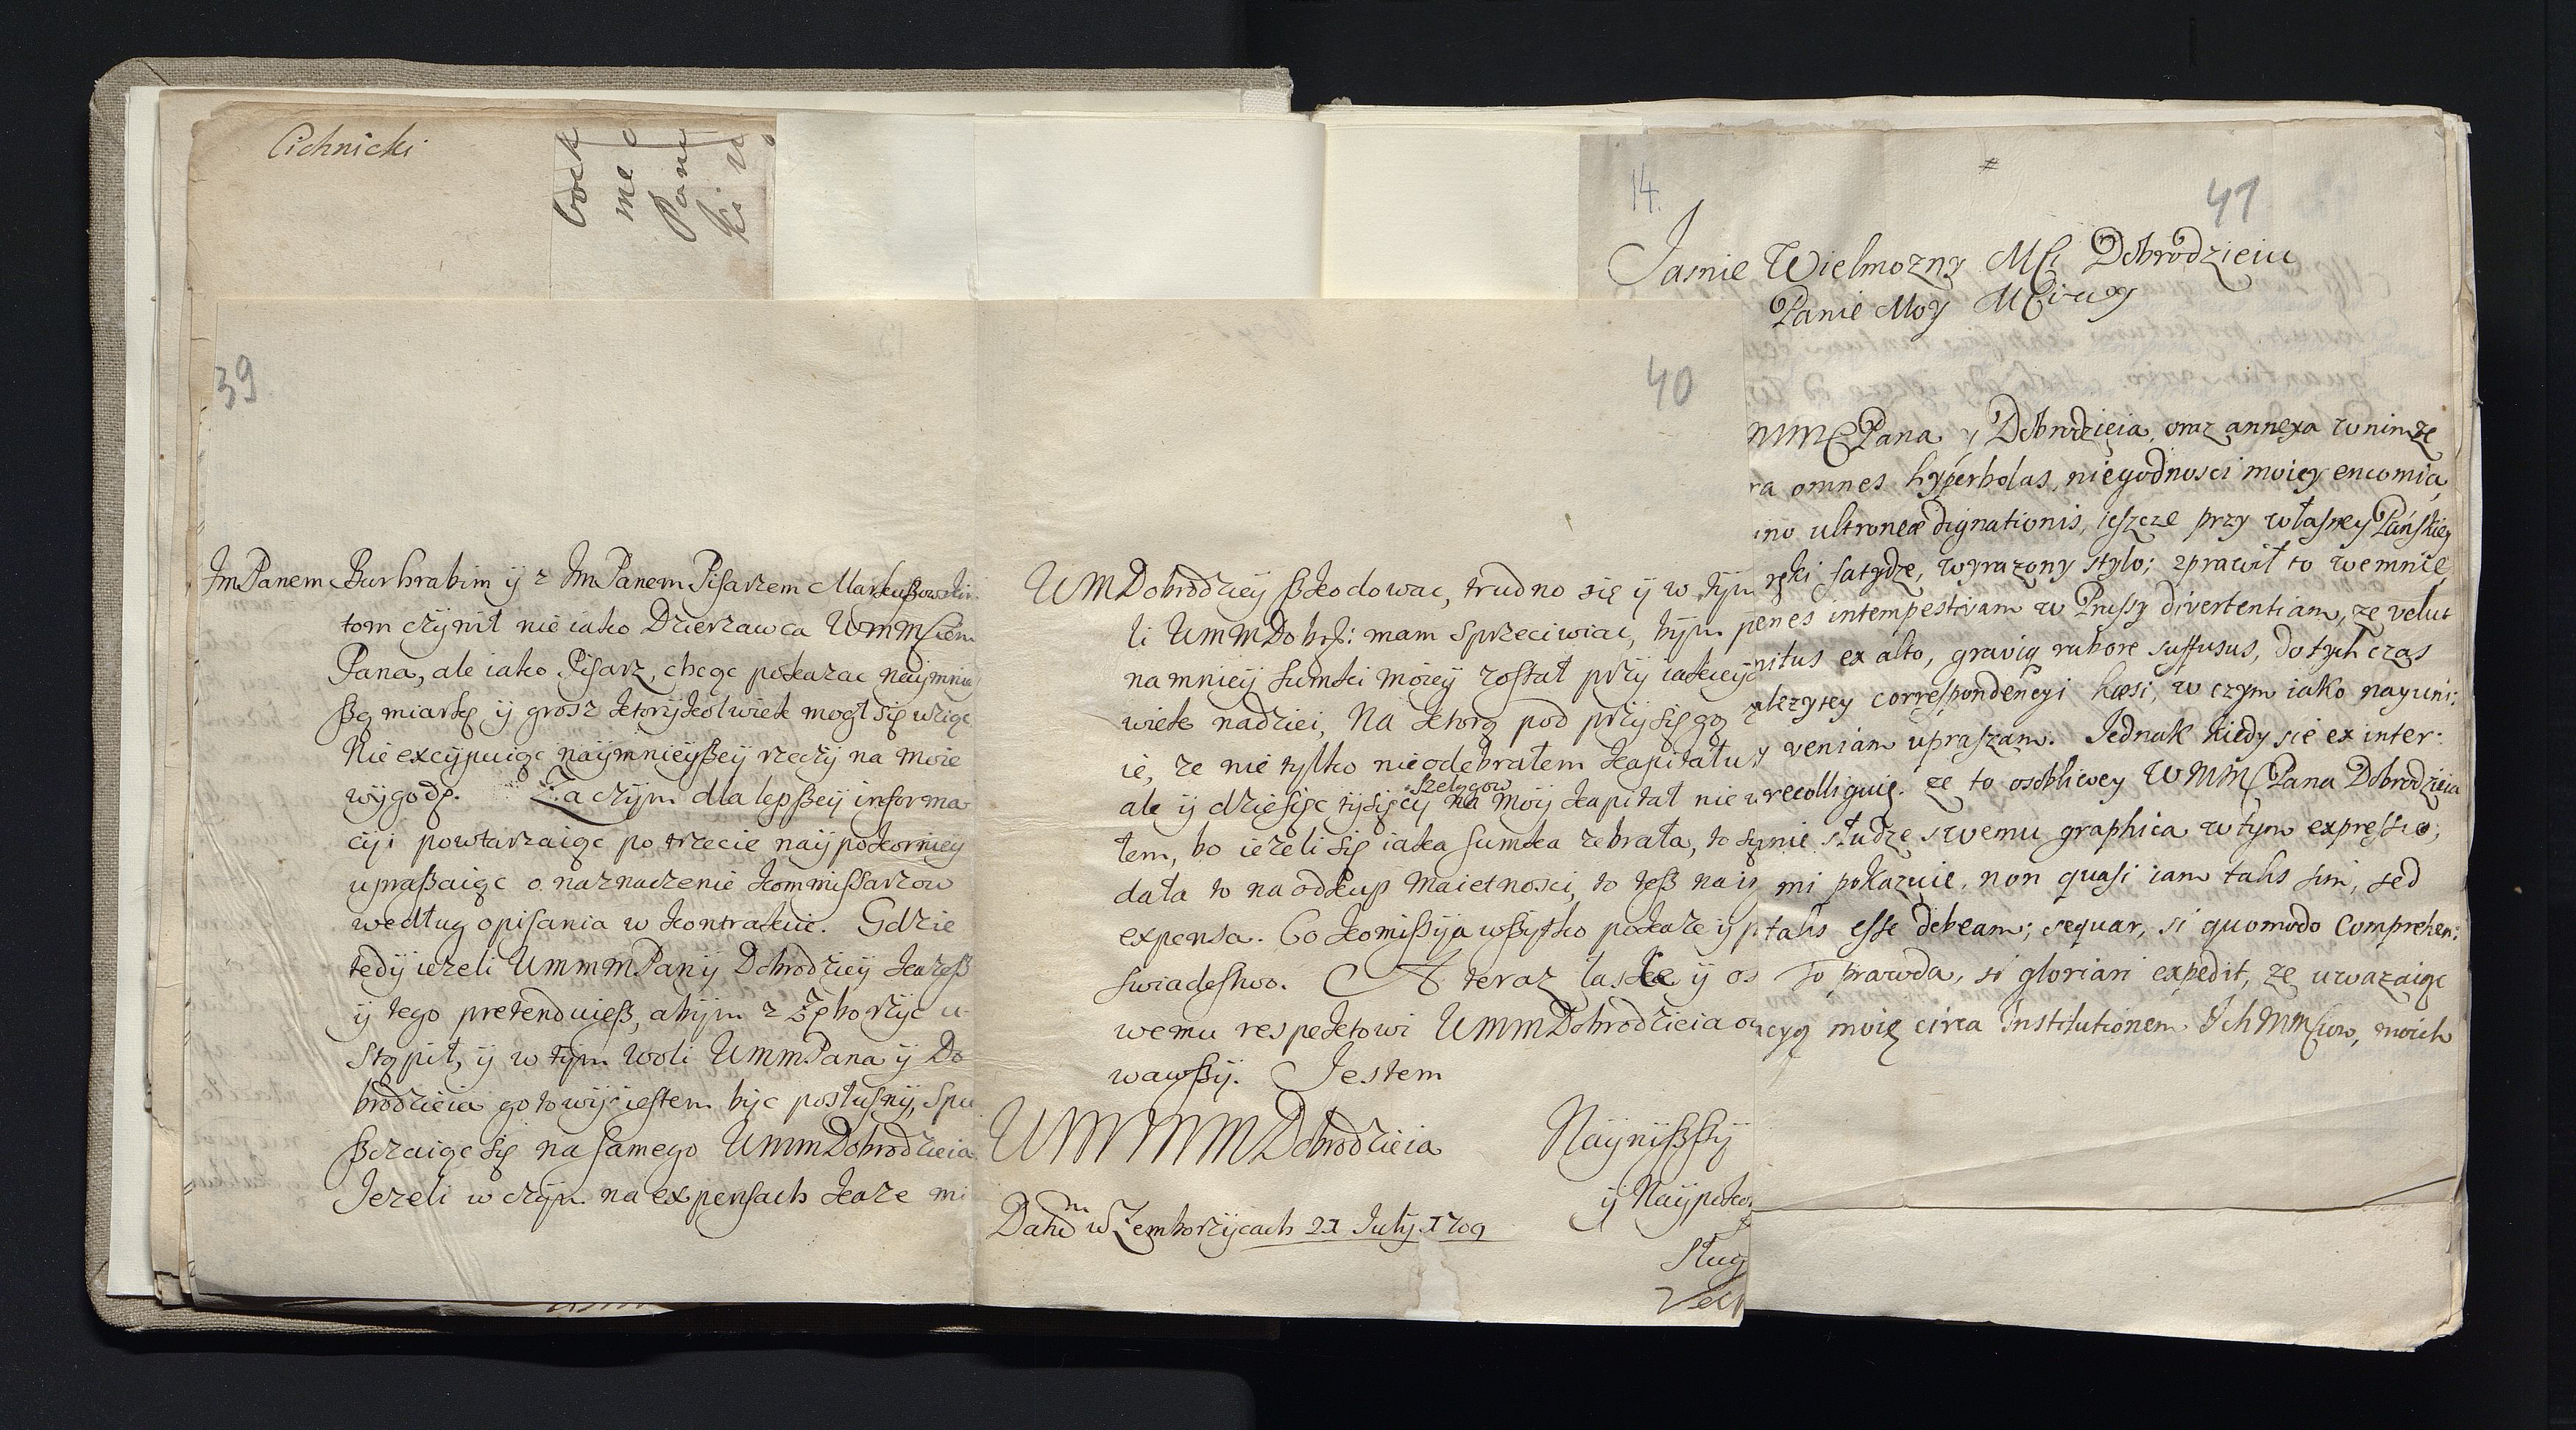 Cichnicki
39
Im Panem Burhrabim ij z Im Panem Pisarzem
tom czÿnił nie iako Dzierzawca WMM
Pana, ale iako Pisarz, chcąc pokazac naÿmniey
ßą miarkę ÿ grosz ktorÿkolwiek mogł się wziąc
Nie excÿpuiąc naÿmnieÿßeÿ rzeczÿ na moie
wÿgodę. Zaczÿm dla lepßeÿ informa
cÿi powtarzaiąc po trzecie naÿpokorniey
upraßaiąc o naznaczenie kommissarzow
według opisania w kontrakcie. Gdzie
tedÿ iezeli UmmmPanÿ Dobrodzieÿ każeß
ÿ tego pretenduieß, abÿm z Zęborzÿc u-
stąpił, ÿ w tÿm woli UmmPana ÿ Do
brodzieia gotowÿ iestem bÿc posłusnÿ, Spu
ßczaiąc się na samego UmmDobrodzieia
Iezeli w czÿm na expensach kaze mi
40
UMDobrodzieÿ ßkodowac, trudno się ÿ w tÿm
li UmmDobrz: mam Sprzeciwiac, bÿm
namnieÿ sumki moieÿ został przÿ iakieÿ
wiek nadziei, Na ktorą pod przÿsięgą
ię, ze nie tylko nie odebrałem kapitału
Szelągow
ale ÿ dziesięc tÿsięcÿ na moÿ kapitał nie
łem, bo iezeli się iaka sumka zebrała, to
dała to na odkup maietnosci, to teß na
expensa. Co komissÿja wßÿtko pokaze ÿ
swiadestwo. A teraz łasce ÿ os
wemu respektowi UmmDobrodzieia
wawßÿ. Iestem
UMMMDobrodzieia
Naÿnißßÿ
ÿ Naÿpoko
Sług
Datm w Zemborzÿcach 21 Julÿ 1709
14.
41
Jasnie Wielmozny MCi Dobrodzieiu
Panie Moy MCiwy
MMCPana y Dobrodzieia, oraz annexa w nim ze
ra omnes hyperbolas, niegodnosci moiey encomia,
ino ultroneæ dignationis, ieszcze przy własney Pańskiey
ręki fatydze, wyrazony stylo; zprawił to wemnie
penes intempestivam w Prussy divertentiam, ze velut
nitus ex alto, gravią rubore suffusus, dotych czas
alezytey correspondencyi hæsi, w czym iako nayuni:
y veniam upraszam. Jednak kiedy sie ex inter:
recolliguię. ze to osobliwey WMMCPana Dobrodzieia
nie słudze swemu graphica w tym expressio,
mi pokazuie, non quasi iam talis sim, sed
talis esse debeam; sequar, si quomodo comprehen:
To prawda, si gloriari expedit, ze uwazaiąc
cyą moię circa Institutionem IchMMCiow, moich